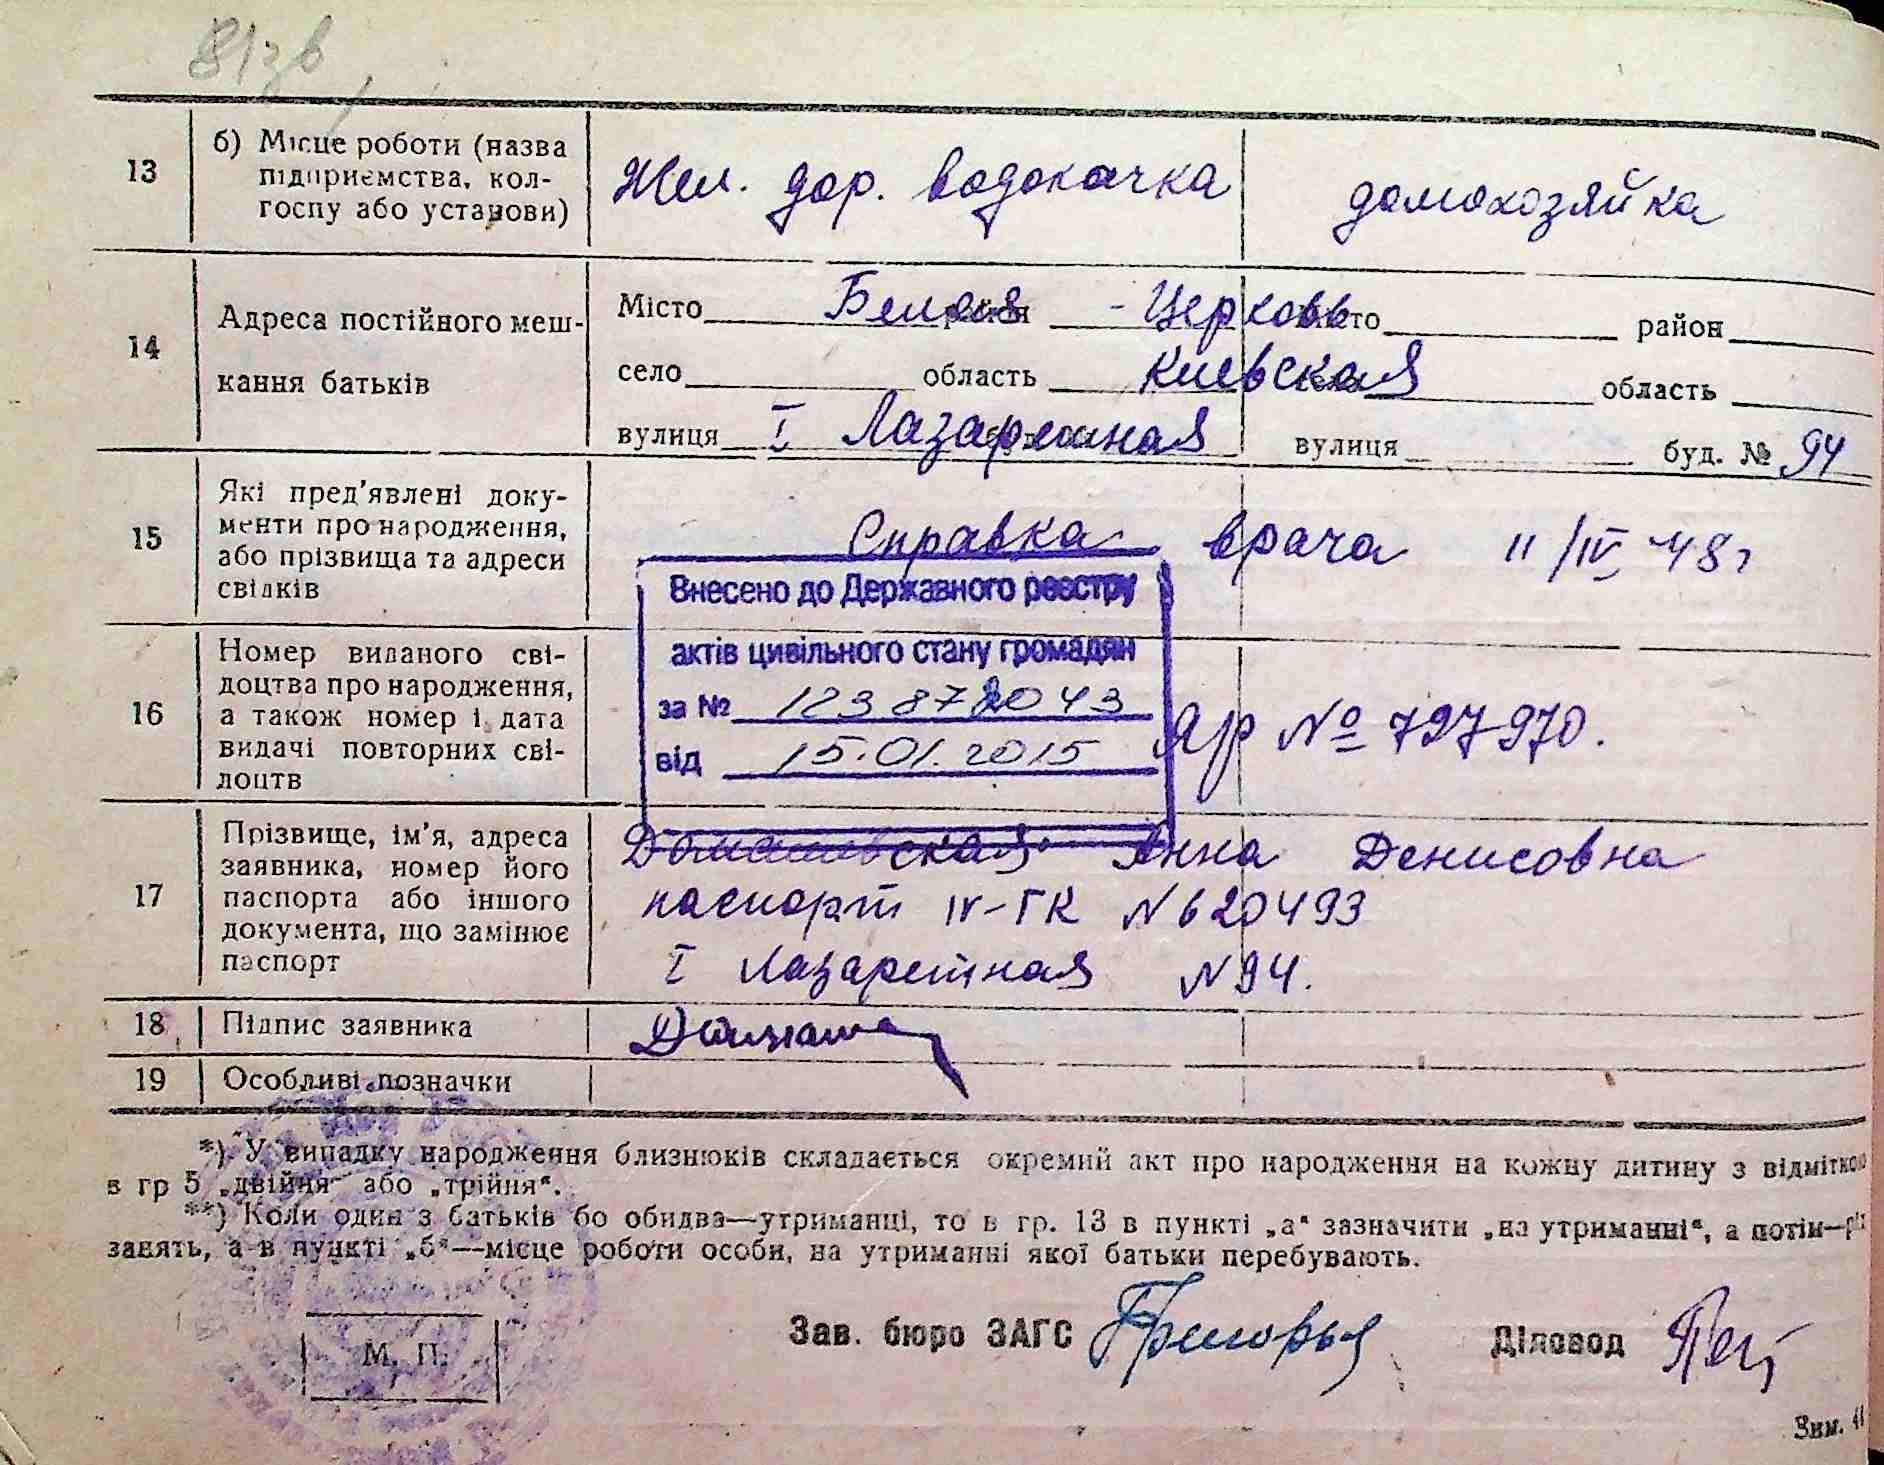 81зв
13
б) Місце роботи (назва
підприємства, кол-
госпу або установи)
Жел. дор. водокачка
домохозяйка
14
Адреса постійного меш-
кання батьків
Місто Белая - Церковь місто район
село область Киевская область
вулиця I Лазаретная вулиця буд. № 94
15
Які пред'явлені доку-
менти про народження,
або прізвища та адреси
свідків
Справка врача 11/IV 48г
Внесено до Державного реєстру
актів цивільного стану громадян
за № 123872043
від 15.01.2015
16
Номер виданого сві-
доцтва про народження,
а також номер і дата
видачі повторних сві-
доцтв
ЯР № 797970.
17
Прізвище, ім'я, адреса
заявника, номер його
паспорта або іншого
документа, що замінює
паспорт
Домашевская Анна Денисовна
паспорт IV-ГК N 620493
I Лазаретная N 94.
18
Підпис заявника
19
Особливі позначки
*) У випадку народження близнюків складається окремий акт про народження на кожну дитину з відміткою
в гр 5 „двійня" або „трійня".
**) Коли один з батьків бо обидва—утриманці, то в гр. 13 в пункті „а" зазначити „на утриманні", а потім—рід
занять, а в пункті „б"—місце роботи особи, на утриманні якої батьки перебувають.
М. П.
Зав. бюро ЗАГС
Діловод